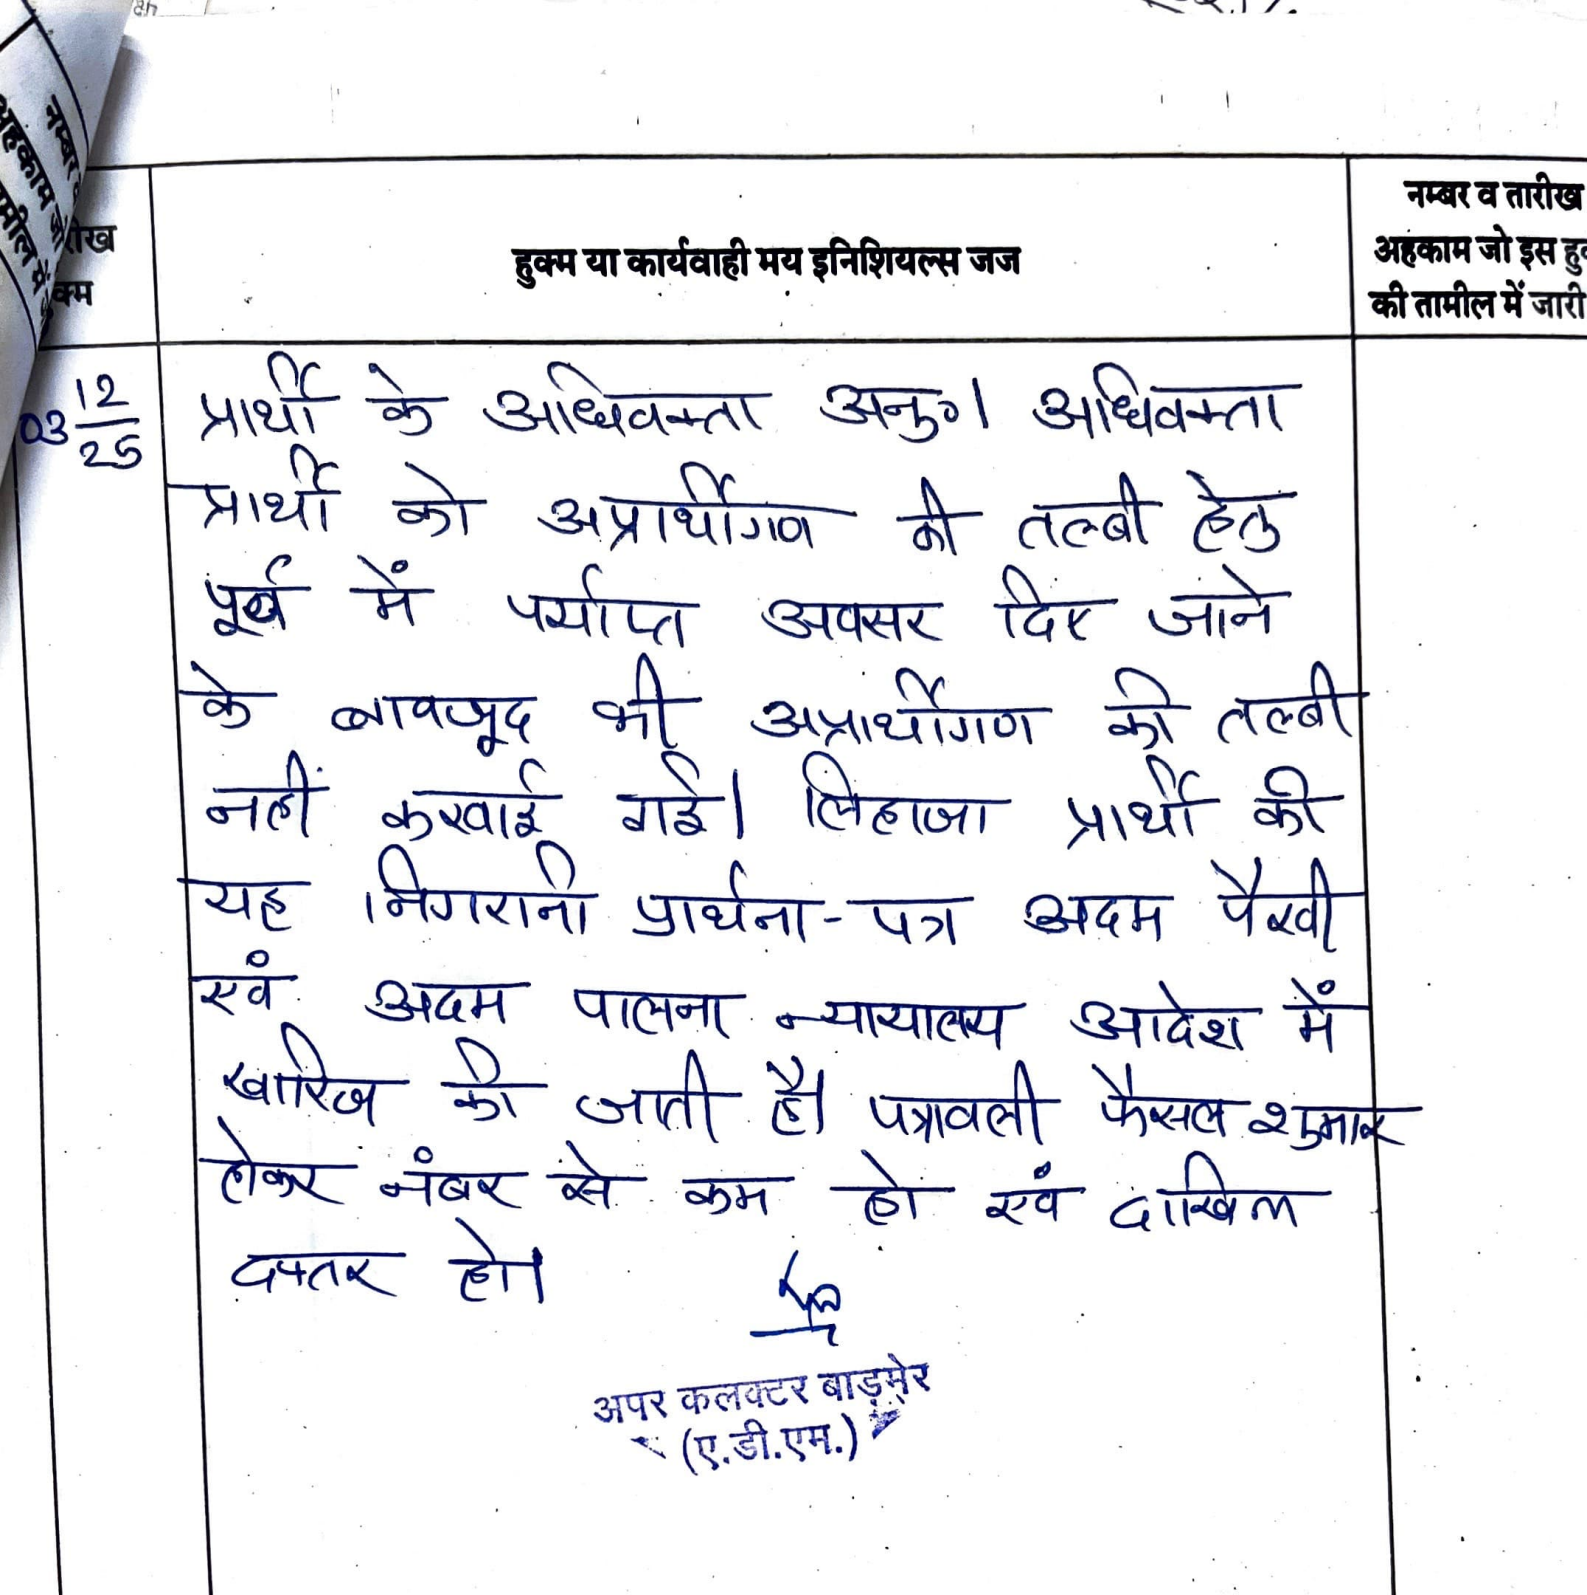 नम्बर व
अहकाम जो
मील में
रीख
क्म
हुक्म या कार्यवाही मय इनिशियल्स जज
नम्बर व तारीख
अहकाम जो इस हु
की तामील में जारी
03 12/25
प्रार्थी के अधिवक्ता अनु०। अधिवक्ता
प्रार्थी को अप्रार्थीगण की तल्बी हेतु
पूर्व में पर्याप्त अवसर दिए जाने
के बावजूद भी अप्रार्थीगण की तल्बी
नहीं करवाई गई। लिहाजा प्रार्थी की
यह निगरानी प्रार्थना-पत्र अदम पैरवी
एवं अदम पालना न्यायालय आदेश में
खारिज की जाती है। पत्रावली फैसल शुमार
होकर नंबर से कम हो एवं दाखिल
दफ्तर हो।
अपर कलक्टर बाड़मेर
(ए.डी.एम.)